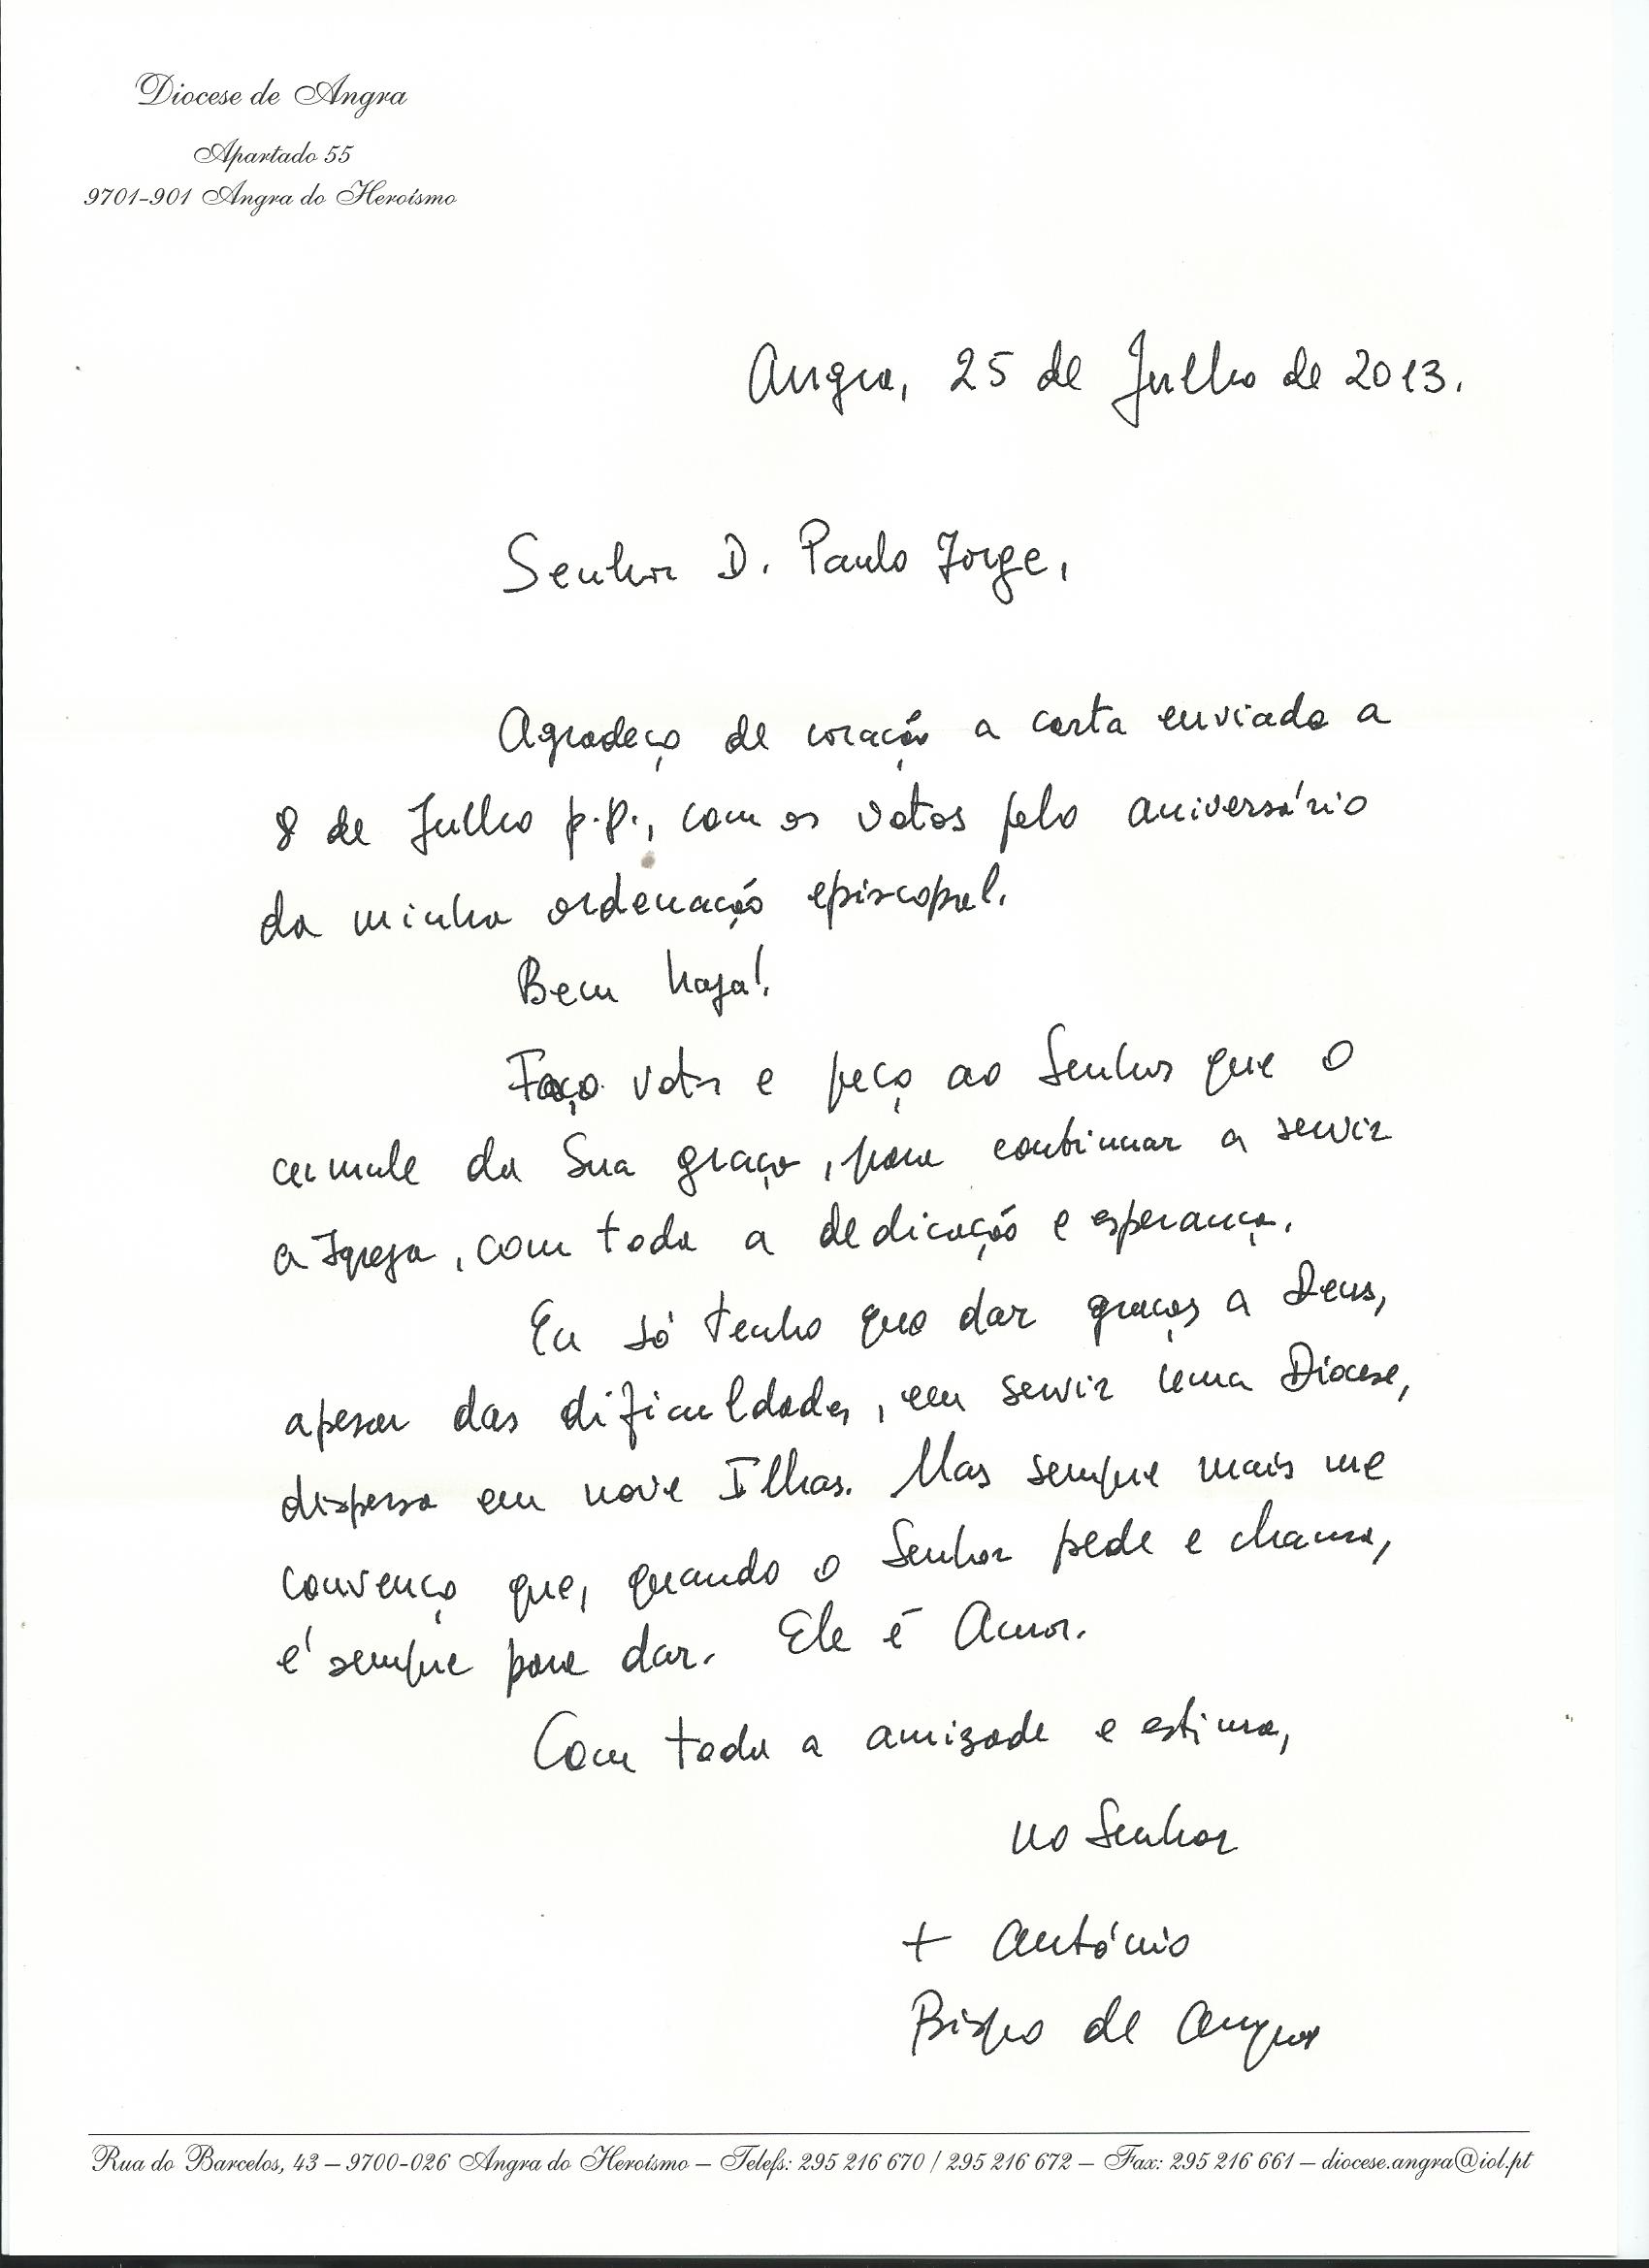 Diocese de Angra
Apartado 55
9701-901 Angra do Heroísmo
Angra, 25 de Julho de 2013.
Senhor D. Paulo Jorge,
Agradeço de coração a carta enviada a
8 de Julho p.p., com os votos pelo aniversário
da minha ordenação episcopal.
Bem haja!
Faço votos e peço ao Senhor que o
cumule da Sua graça, para continuar a servir
a Igreja, com toda a dedicação e esperança.
Eu só tenho que dar graças a Deus,
apesar das dificuldades, em servir uma Diocese,
dispersa em nove Ilhas. Mas sempre mais me
convenço que, quando o Senhor pede e chama,
é sempre para dar. Ele é Amor.
Com toda a amizade e estima,
no Senhor
+ António
Bispo de Angra
Rua do Barcelos, 43 – 9700-026 Angra do Heroísmo – Telefs: 295 216 670 / 295 216 672 – Fax: 295 216 661 – diocese.angra@iol.pt